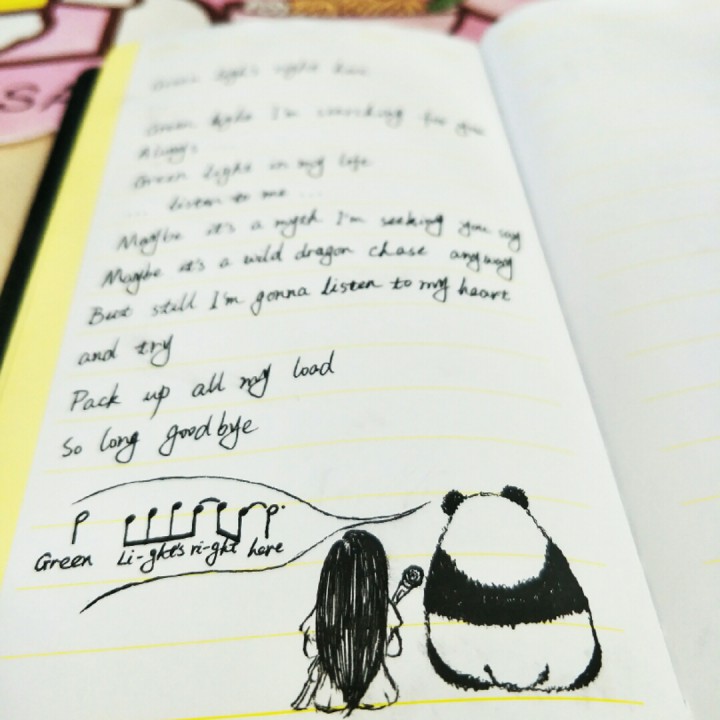 Green light's right here
Green light I'm searching for you
Always
Green light in my life
... listen to me ...
Maybe it's a myth I'm seeking you say
Maybe it's a wild dragon chase anyway
But still I'm gonna listen to my heart
and try
Pack up all my load
So long goodbye
Green Li-ght's ri-ght here